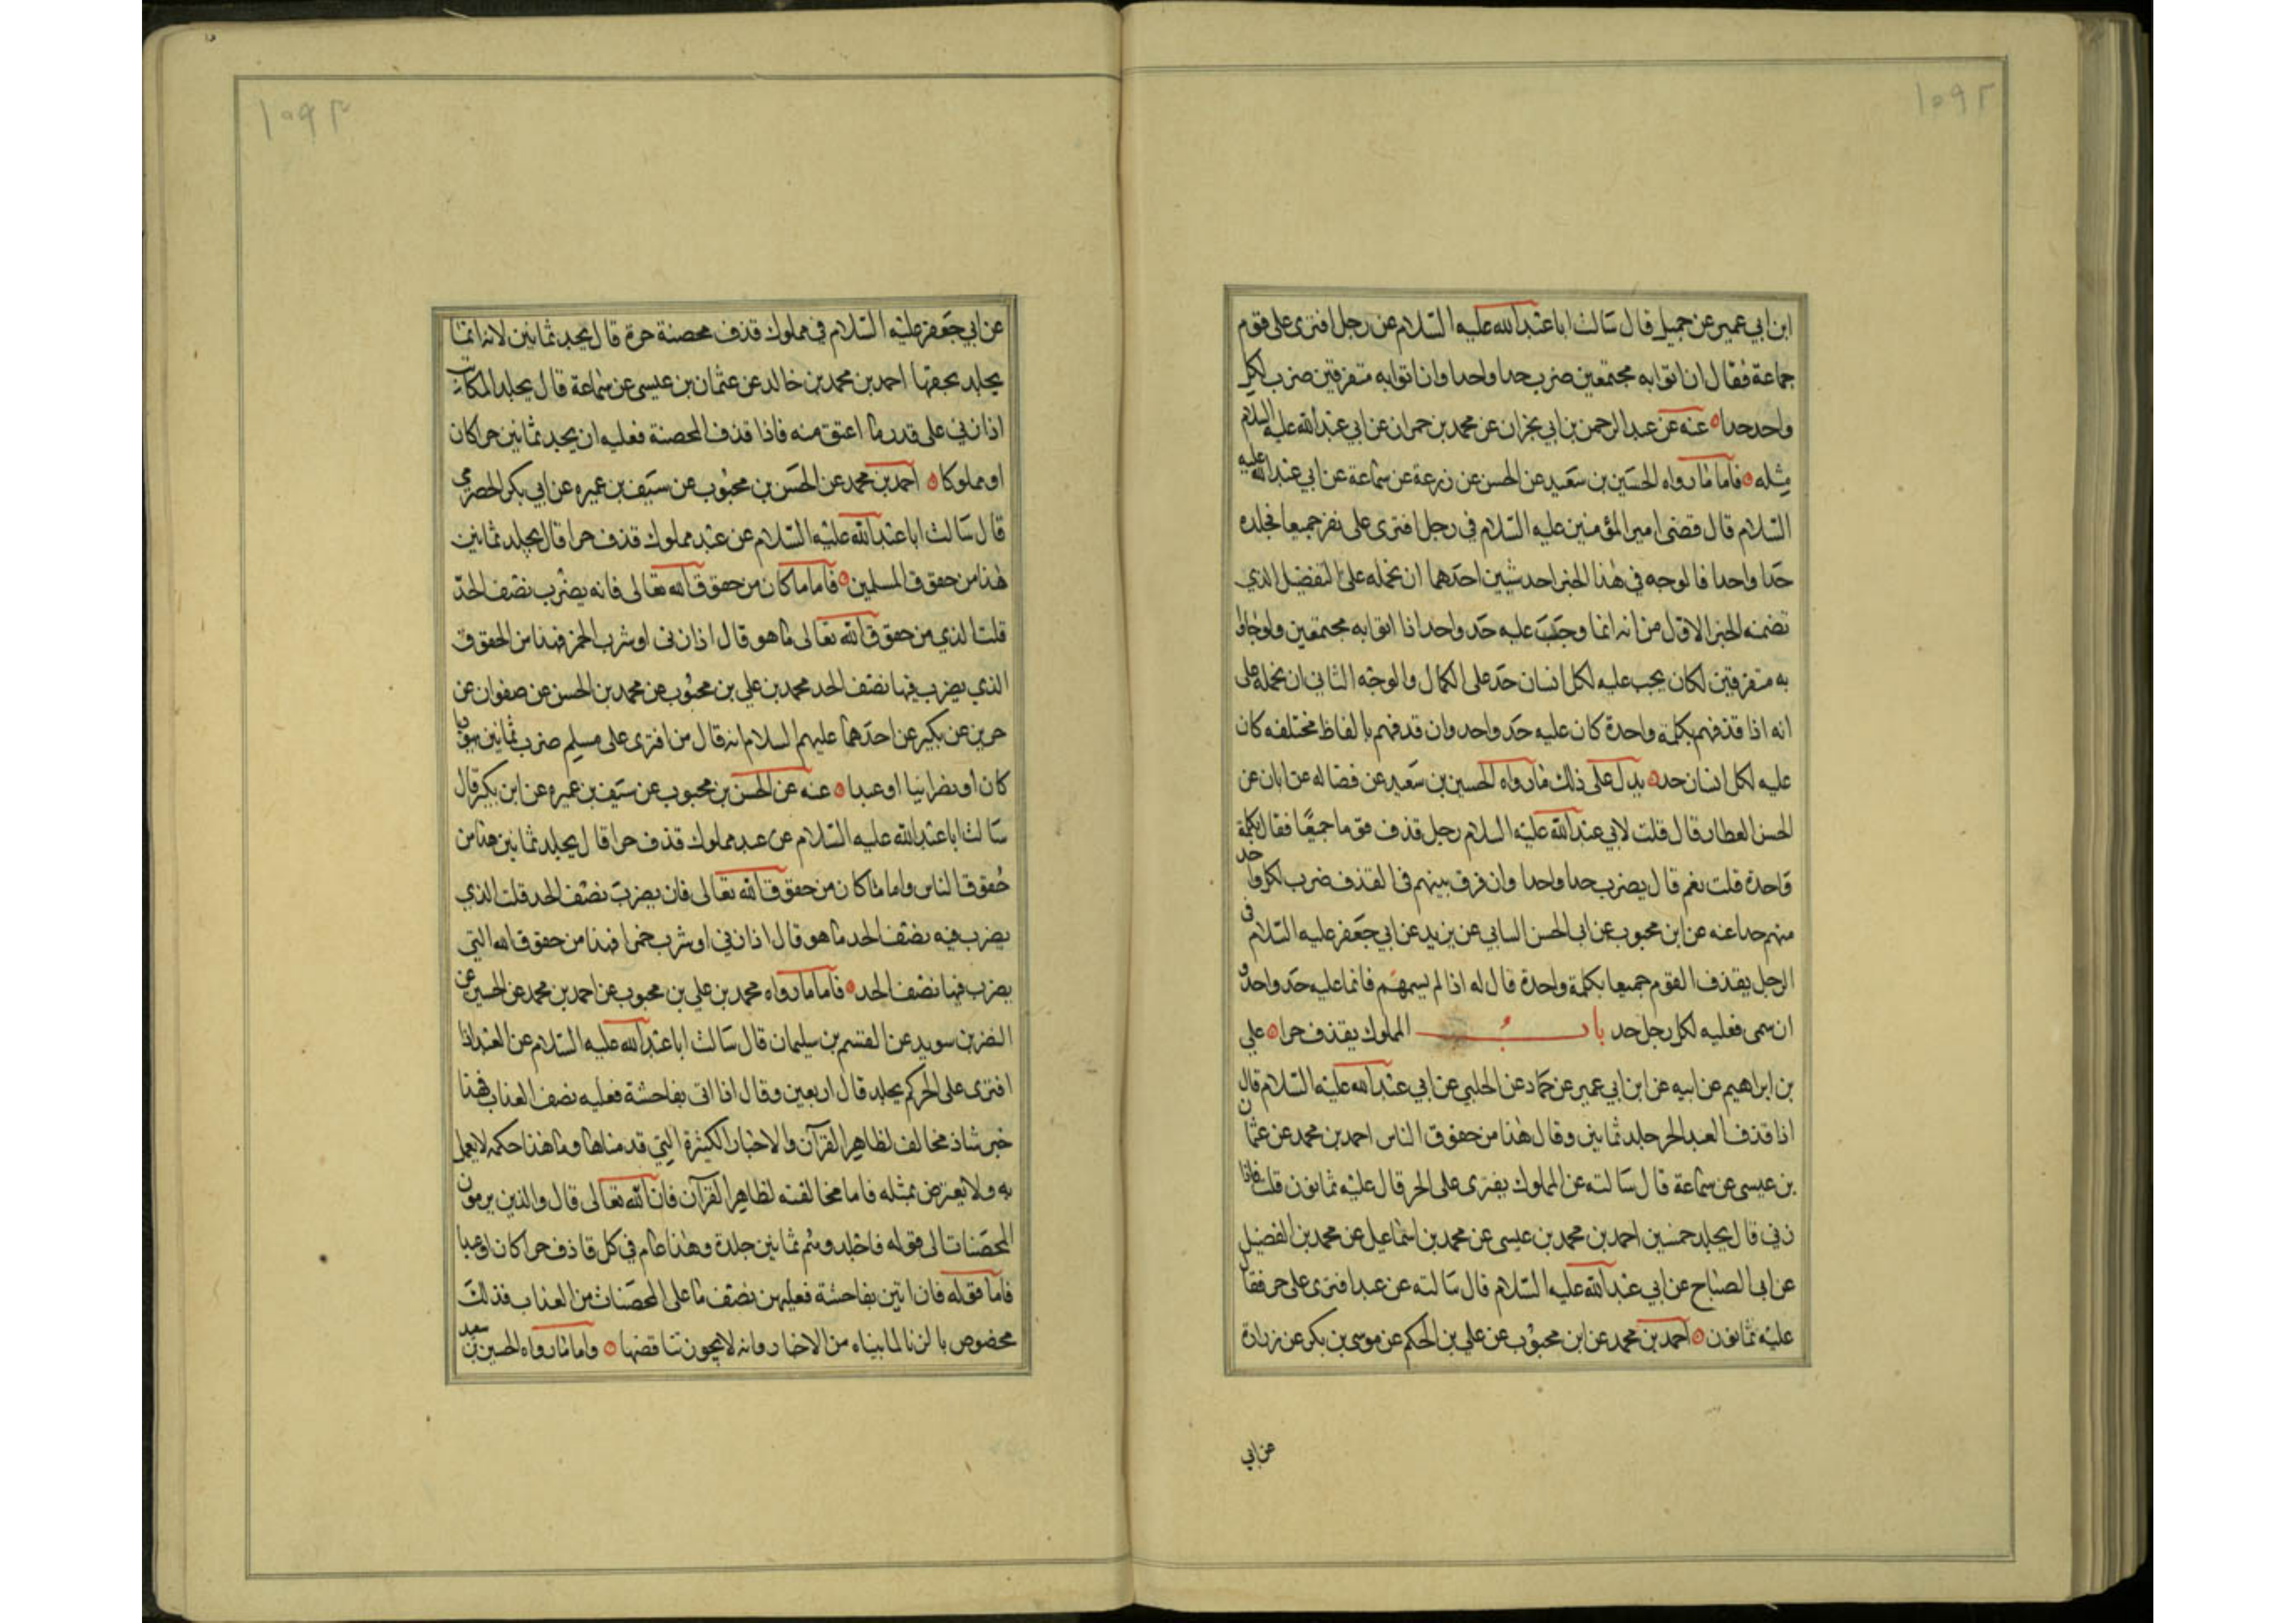 ١٠٩٢
ابن ابي عمير عن جميل قال سالت ابا عبد الله عليه السلام عن رجل افترى على قوم
جماعة فقال ان اتوا به مجتمعين ضرب حدا واحدا وان اتوا به متفرقين ضرب لكل
واحد حدا عنه عن عبد الرحمن بن ابي نجران عن محمد بن حمران عن ابي عبد الله عليه السلام
مثله فاما ما رواه الحسين بن سعيد عن الحسن عن زرعة عن سماعة عن ابي عبد الله عليه
السلام قال قضى امير المؤمنين عليه السلام في رجل افترى على نفر جميعا فجلده
حدا واحدا فالوجه في هذا الخبر احد شيئين احدهما ان نحمله على التفضيل الذي
تضمنه الخبر الاول من انه انما وجب عليه حد واحد اذا اتوا به مجتمعين ولو جاؤا
به متفرقين لكان يجب عليه لكل انسان حد على الكمال والوجه الثاني ان نحمله على
انه اذا قذفهم بكلمة واحدة كان عليه حد واحد وان قدفهم بالفاظ مختلفه كان
عليه لكل انسان حد يدل على ذلك ما رواه الحسين بن سعيد عن فضاله عن ابان عن
الحسن العطار قال قلت لابي عبد الله عليه السلام رجل قذف قوما جميعا فقال بكلمة
واحدة قلت نعم قال يضرب حدا واحدا وان فرق بينهم في القذف ضرب لكل واحد
منهم حدا عنه عن ابن محبوب عن ابي الحسن السابي عن بريد عن ابي جعفر عليه السلام في
الرجل يقذف القوم جميعا بكلمة واحدة قال له اذا لم يسمهم فانما عليه حد واحد و
ان سمى فعليه لكل رجل حد باب المملوك يقذف حرا علي
بن ابراهيم عن ابيه عن ابن ابي عمير عن حماد عن الحلبي عن ابي عبد الله عليه السلام قال
اذا قذف العبد الحر جلد ثمانين وقال هذا من حقوق الناس احمد بن محمد عن عثمان
بن عيسى عن سماعة قال سالته عن المملوك يفترى على الحر قال عليه ثمانون قلت فاذا
زنى قال يجلد خمسين احمد بن محمد بن عيسى عن محمد بن اسماعيل عن محمد بن الفضيل
عن ابي الصباح عن ابي عبد الله عليه السلام قال سالته عن عبد افترى على حر فقال
عليه ثمانون احمد بن محمد عن ابن محبوب عن علي بن الحكم عن موسى بن بكر عن زرارة
عن ابي
١٠٩٣
عن ابي جعفر عليه السلام في مملوك قذف محصنة حرة قال يجلد ثمانين لانه انما
يجلد بحقها احمد بن محمد بن خالد عن عثمان بن عيسى عن سماعة قال يجلد المكاتب
اذا زنى على قدر ما اعتق منه فاذا قذف المحصنة فعليه ان يجلد ثمانين حرا كان
او مملوكا احمد بن محمد عن الحسن بن محبوب عن سيف بن عميره عن ابي بكر الحضرمي
قال سالت ابا عبد الله عليه السلام عن عبد مملوك قذف حرا قال يجلد ثمانين
هذا من حقوق المسلمين فاما ما كان من حقوق الله تعالى فانه يضرب نصف الحد
قلت الذي من حقوق الله تعالى ما هو قال اذا زنى او شرب الخمر فهذا من الحقوق
الذي يضرب فيها نصف الحد محمد بن علي بن محبوب عن محمد بن الحسن عن صفوان عن
حريز عن بكير عن احدهما عليهم السلام انه قال من افترى على مسلم ضرب ثمانين يهوديا
كان او نصرانيا او عبدا عنه عن الحسن بن محبوب عن سيف بن عميره عن ابن بكير قال
سالت ابا عبد الله عليه السلام عن عبد مملوك قذف حرا قال يجلد ثمانين هذا من
حقوق الناس واما ما كان من حقوق الله تعالى فان يضرب نصف الحد قلت الذي
يضرب فيه نصف الحد ما هو قال اذا زنى او شرب خمرا فهذا من حقوق الله التي
يضرب فيها نصف الحد فاما ما رواه محمد بن علي بن محبوب عن احمد بن محمد عن الحسين عن
النضر بن سويد عن القسم بن سليمان قال سالت ابا عبد الله عليه السلام عن العبد اذا
افترى على الحر كم يجلد قال اربعين وقال اذا اتى بفاحشة فعليه نصف العذاب فهذا
خبر شاذ مخالف لظاهر القرآن والاخبار الكثيرة التي قدمناها وما هذا حكمه لا يعمل
به ولا يعترض بمثله فاما مخالفته لظاهر القرآن فان الله تعالى قال والذين يرمون
المحصنات الى قوله فاجلدوهم ثمانين جلدة وهذا عام في كل قاذف حرا كان او عبدا
فاما قوله فان اتين بفاحشة فعليهن نصف ما على المحصنات من العذاب فذلك
مخصوص بالزنا لما بيناه من الاخبار وانه لا يجوز تناقضها واما ما رواه الحسين بن سعيد